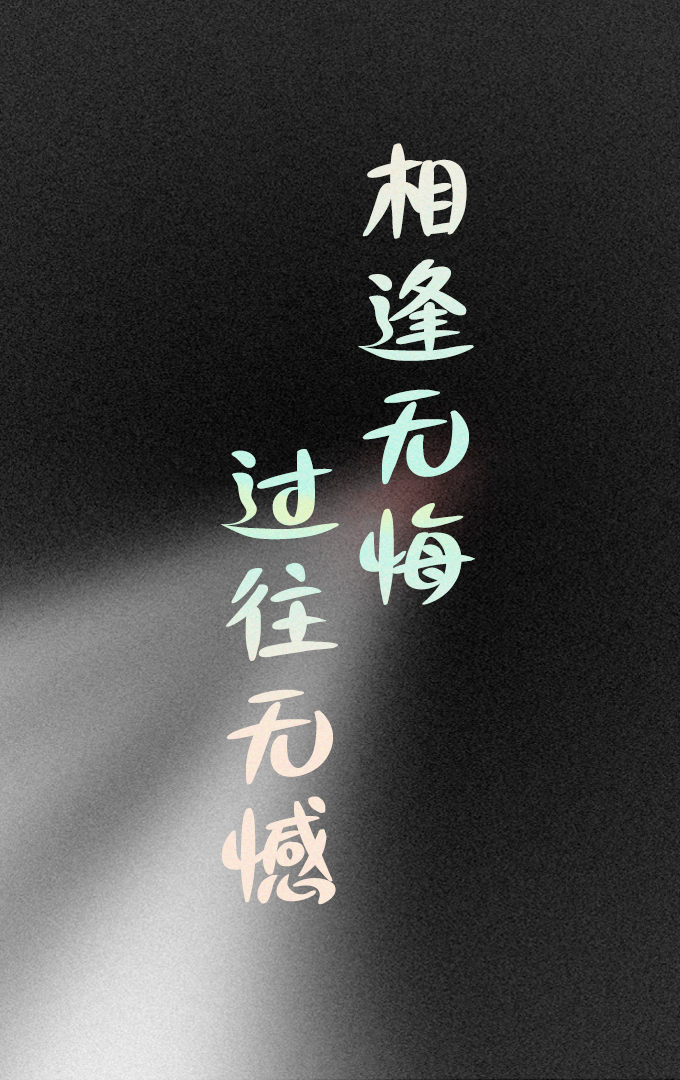 相逢无悔
过往无憾